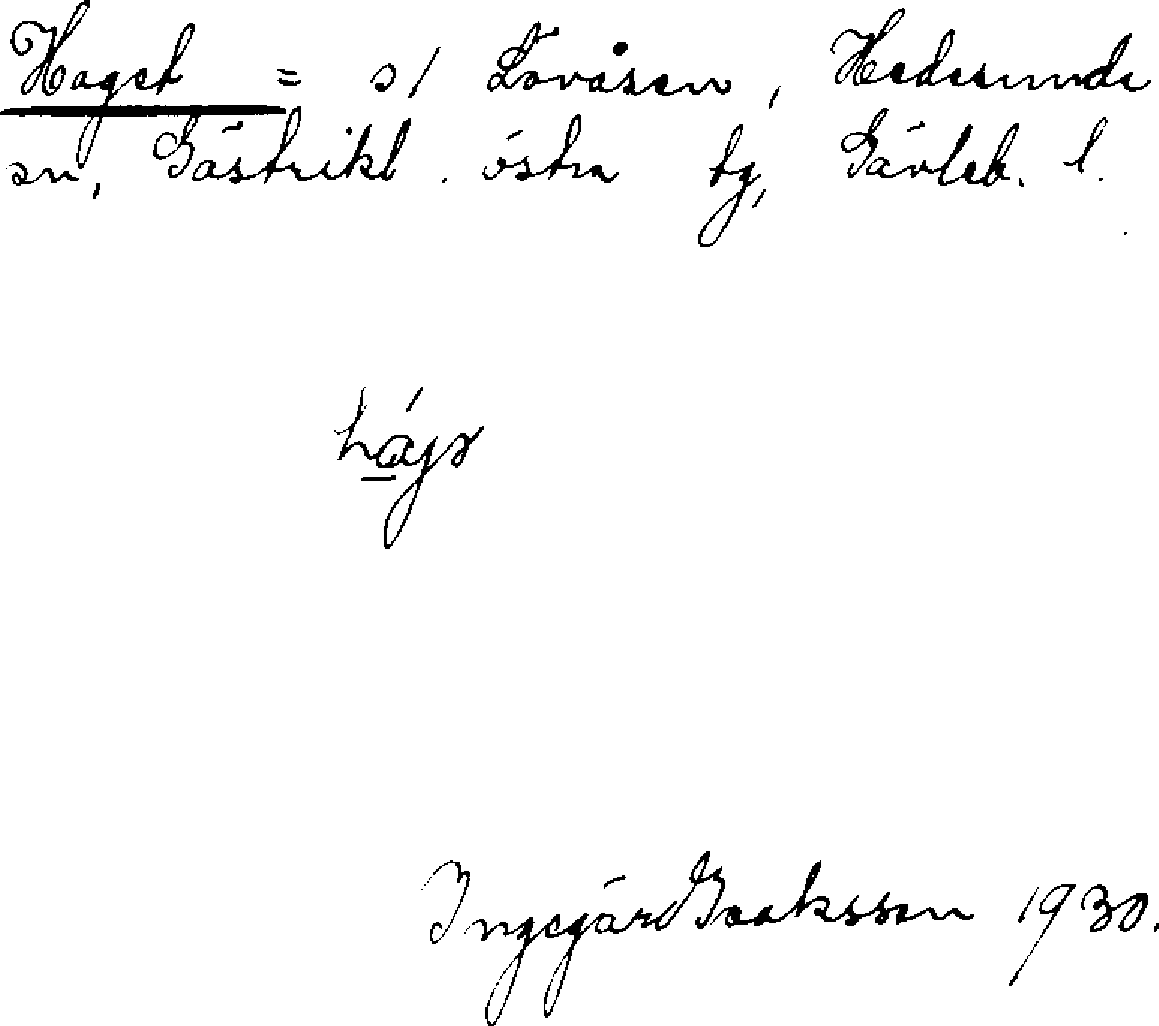 Haget = s/ Lövåsen, Hedesunda
sn, Gästrikl. östra tg, Gävleb. l.
Ingegärd Isaksson 1930.